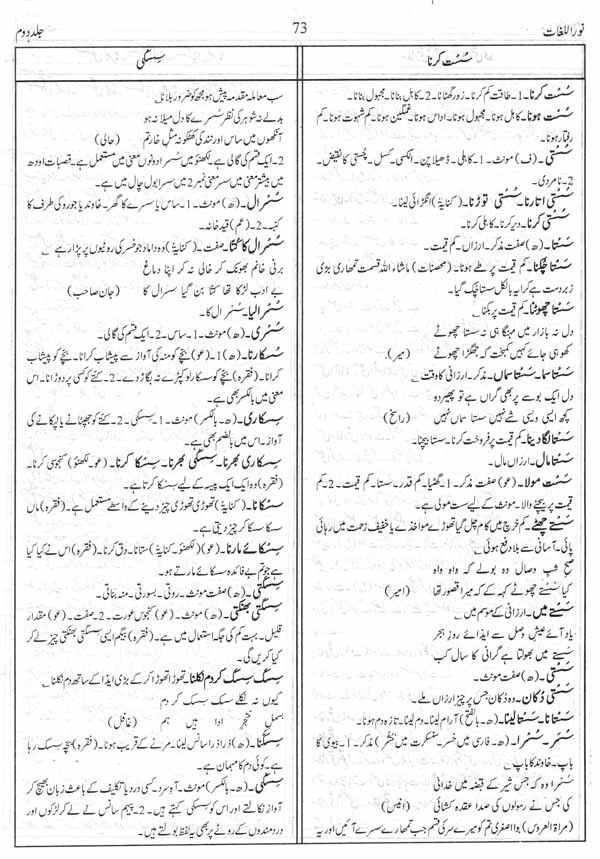 نوراللغات
73
جلد دوم
سُست کرنا
سُست کرنا۔ 1۔ طاقت کم کرنا۔ زور گھٹانا۔ 2۔ کاہل بنانا۔ مجہول بنانا۔
سُست ہونا۔ کاہل ہونا۔ مجہول ہونا۔ اداس ہونا۔ غمگین ہونا۔ کم شہوت ہونا۔ کم
رفتار ہونا۔
سُستی۔ (ف) مونث۔ 1۔ کاہلی۔ ڈھیلا پن۔ الکسی۔ کسل۔ چستی کا نقیض۔
2۔ نامردی۔
سُستی اتارنا۔ سُستی توڑنا۔ (کنایۃً) انگڑائی لینا۔
سُستی کرنا۔ دیر کرنا۔ کاہلی کرنا۔
سَستا۔ (ھ) صفت مذکر۔ ارزاں۔ کم قیمت۔
سَستا چکنا۔ کم قیمت پر طے ہونا۔ (محصنات) ماشاء اللہ قسمت تمھاری بڑی
زبردست ہے کرایہ بالکل سستا چک گیا۔
سَستا چھوٹنا۔ کم قیمت پر بکنا
دل نہ بازار میں مہنگا ہی نہ سستا چھوٹے
کھو ہی جائے کہیں کمبخت کہ جھگڑا چھوٹے (میر)
سَستا سما۔ سَستا سماں۔ مذکر۔ ارزانی کا وقت
دل ایک بوسے پر بھی گراں ہے تو پھیر دو
کچھ ایسی ویسی شے نہیں سستا سماں نہیں (راسخ)
سَستا لگا دینا۔ کم قیمت پر فروخت کرنا۔ سستا بیچنا۔
سَستا مال۔ ارزاں مال۔
سَست مولا۔ (عو) صفت مذکر۔ 1۔ گھٹیا۔ کم قدر۔ سستا۔ کم قیمت۔ 2۔ کم
قیمت پر بیچنے والا۔ مونث کے لیے سست مولی ہے۔
سَستے چھٹے۔ کم خرچ میں کام چل گیا تھوڑے مواخذے یا خفیف زحمت میں رہائی
پائی۔ آسانی سے بلا دفع ہوئی
صبح شب وصال وہ بولے کہ واہ واہ
کیا سستے چھوٹے کہہ کے کہ میرا قصور تھا (امیر)
سَستے میں۔ ارزانی کے موسم میں
یاد آئے عیش وصل سے ایذائے روز ہجر
سستے میں بھولتا ہے گرانی کا سال کب
سَستی۔ (ھ) صفت مونث۔
سَستی دُکان۔ وہ دکان جس پر چیز ارزاں ملے۔
سَستانا۔ سَستا لینا۔ (ھ۔ بالفتح) آرام لینا۔ دم لینا۔ تازہ دم ہونا۔
سُسر۔ سُسرا۔ (ھ۔ فارسی میں خسر۔ سنسکرت میں) مذکر۔ 1۔ بیوی کا
باپ۔ خاوند کا باپ
سُسرا وہ کہ جس شیر کے قبضہ میں خدائی
کی جس نے رسولوں کی صدا عقدہ کشائی (انیس)
(مراۃ العروس) بوا اصغری تم کو میرے سر کی قسم جب تمھارے سسرے آئیں اور یہ
سسکی
سب معاملہ مقدمہ پیش ہو مجھ کو ضرور بلانا
بدلے نہ شوہر کی نظر سسرے کا دل میلا نہ ہو
آنکھوں میں ساس اور نند کی کھٹکو نہ مثل خار تم (حالی)
2۔ ایک قسم کی گالی ہے۔ لکھنؤ میں سسرا دونوں معنی میں مستعمل ہے۔ قصبات اودھ
میں بیشتر معنی میں سسر معنی نمبر 2 میں سسرا بول چال میں ہے۔
سُسرال۔ (ھ) مونث۔ 1۔ ساس یا سسرے کا گھر۔ خاوند یا جورو کی طرف کا
کنبہ۔ 2۔ (عم) قید خانہ۔
سُسرال کا کُتّا۔ صفت۔ (کنایۃً) وہ داماد جو خسر کی روٹیوں پر پڑا رہے
برنی خانم بھونک کر خالی نہ کر اپنا دماغ
بے ادب لڑکا تھا کتا بن گیا سسرال کا (جان صاحب)
سُسرالیا۔ سُسرال کا۔
سُسری۔ (ھ) مونث۔ 1۔ ساس۔ 2۔ ایک قسم کی گالی۔
سُسکارنا۔ (ھ) 1۔ (عو) بچے کو منہ کی آواز سے پیشاب کرانا۔ بچے کو پیشاب
کرانا۔ (فقرہ) بچے کو سسکار لو کپڑے نہ بگاڑ دے۔ 2۔ کتے کو کسی پر دوڑانا۔ اس
معنی میں بالکسر بھی ہے۔
سِسکاری۔ (ھ۔ بالکسر) مونث۔ 1۔ سسکی۔ 2۔ کتے کو جھپٹانے یا لپکانے کی
آواز۔ اس میں بالضم بھی ہے۔
سِسکاری بھرنا۔ سِسکی بھرنا۔ سِسکا کرنا۔ (عو۔ لکھنؤ) کنجوسی کرنا۔
(فقرہ) وہ ایک ایک پیسہ کے لیے سسکا کرتا ہے۔
سِسکانا۔ (کنایۃً) تھوڑی تھوڑی چیز دینے کے واسطے مستعمل ہے۔ (فقرہ) ماں
سسکا سسکا کر چیز دیتی ہے۔
سِسکائے مارنا۔ (عو) (لکھنؤ۔ کنایۃً) ستانا۔ دق کرنا۔ (فقرہ) اس نے کیا کیا
ہے جو تم بے فائدہ سسکائے مارتے ہو۔
سِسکتی۔ (ھ) صفت مونث۔ روتی۔ بسورتی۔ منہ بناتی۔
سِسکتی بھنکتی۔ (ھ) مونث۔ (عو) کنجوس عورت۔ 2۔ صفت۔ (عو) مقدار
قلیل۔ بہت کم کی جگہ استعمال میں ہے۔ (فقرہ) بیگم ایسی سسکتی بھنکتی چیز لے کر
کیا کریں گی۔
سِسک سِسک کر دم نکلنا۔ تھوڑا تھوڑا کر کے بڑی ایذا کے ساتھ دم نکلنا
کیوں نہ نکلے سسک سسک کر دم
بسمل خنجر ادا ہیں ہم (غافل)
سِسکنا۔ (ھ) ذرا ذرا سانس لینا۔ مرنے کے قریب ہونا۔ (فقرہ) بچہ سسک رہا
ہے۔ کوئی دم کا مہمان ہے۔
سِسکی۔ (ھ۔ بالکسر) مونث۔ آہ سرد۔ کسی درد یا تکلیف کے باعث زبان بھینچ کر
آواز نکالتے اور اس کو سسکی کہتے ہیں۔ 2۔ پیہم سانس لے لے کر لڑکوں اور
دردمندوں کے رونے پر بھی یہ لفظ بولتے ہیں۔